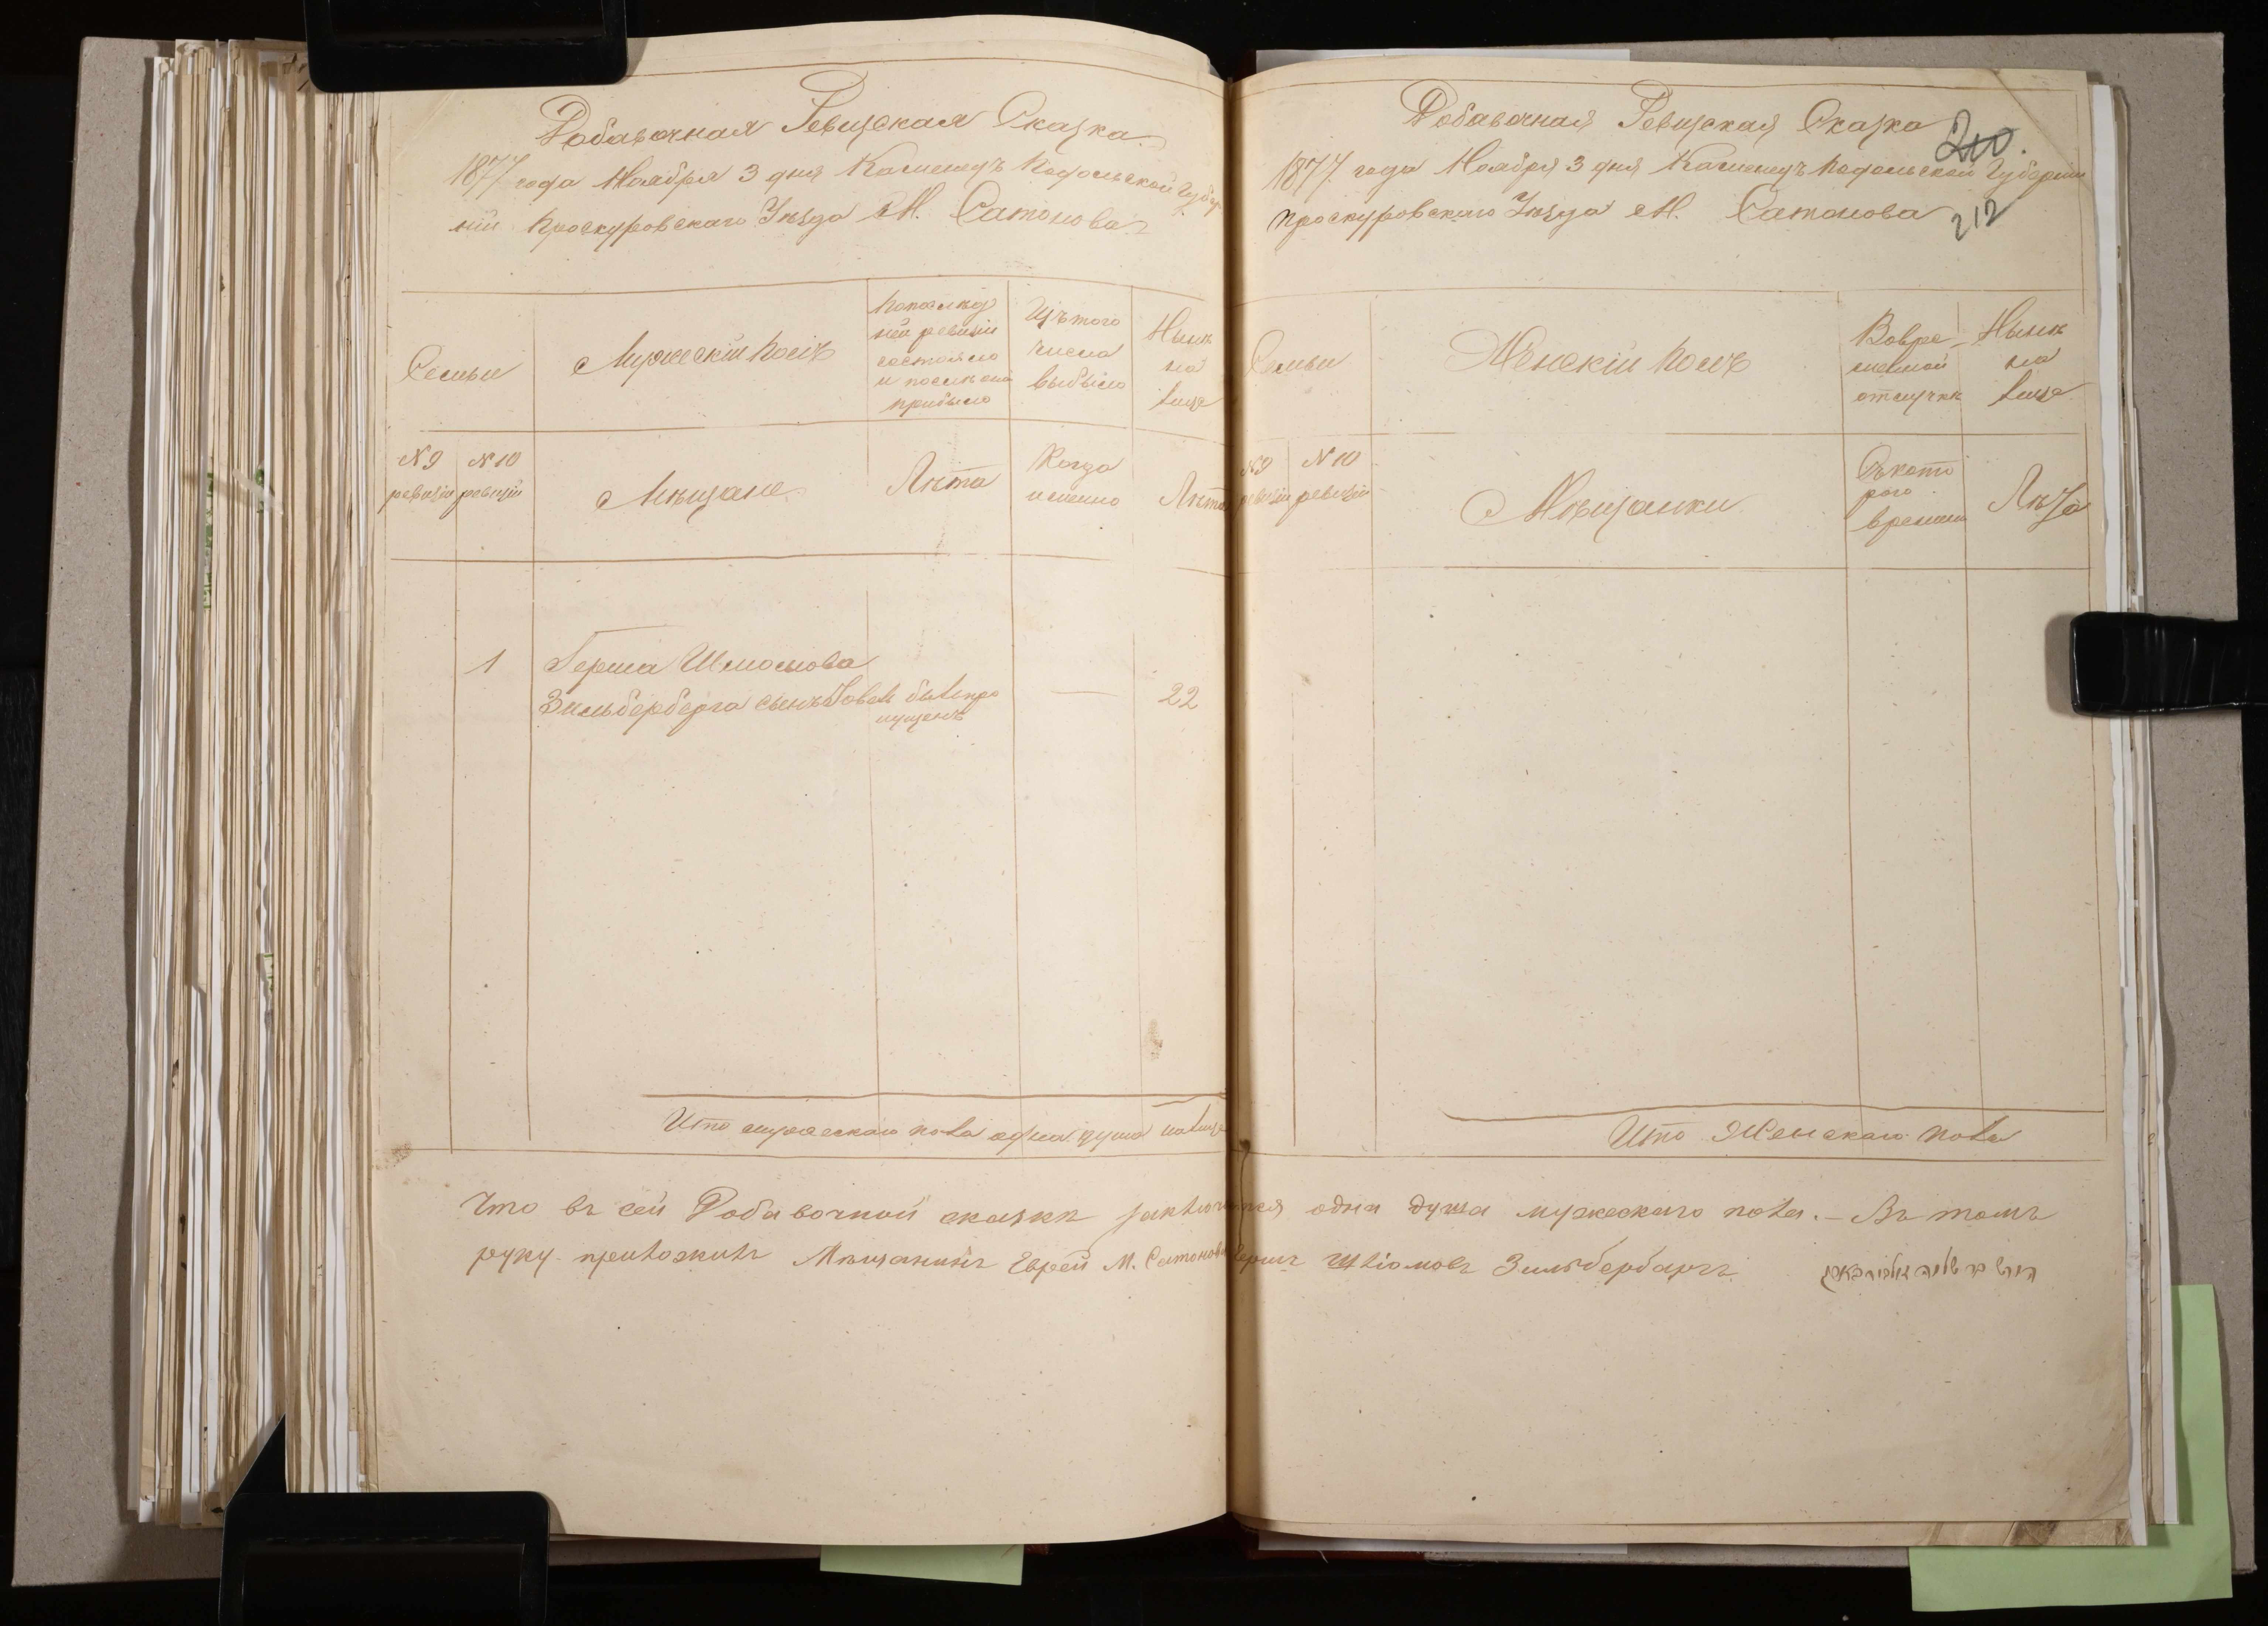 Добавочная Ревизская Сказка
1877 года Ноября 3 дня Каменецъ Подольской Губер
ніи Проскуровскаго Уѣзда М. Сатонова
Семьи
Мужескій Полъ
По послѣд
ней ревизіи
состояло
и послѣ оной
прибыло
Изъ того
числа
выбыло
Нынѣ
на
лице
№ 9
ревизіи
№ 10
ревизіи
Мѣщане
Лѣта
Когда
именно
Лѣта
1
Герша Шліомова
Зильберберга сынъ былъ про
пущенъ
—
22
Ито мужескаго пола одна душа налице
Добавочная Ревизская Сказка
210.
1877 года Ноября 3 дня Каменецъ Подольской Губерніи
Проскуровскаго Уѣзда М. Сатонова
212
Семьи
Женскій Полъ
Во вре-
менной
отлучкѣ
Нынѣ
на
лице
№ 9
ревизіи
№ 10
ревизіи
Мѣщанки
Съ кото
раго
времени
Лѣта
Ито Женскаго пола
Что въ сей Добавочной сказкѣ заключается одна душа мужескаго пола. – Въ томъ
руку приложилъ Мѣщанинъ Еврей М. Сатонова Гершъ Шліомовъ Зильбербаргъ הירש בר שלמה זילבערבארג